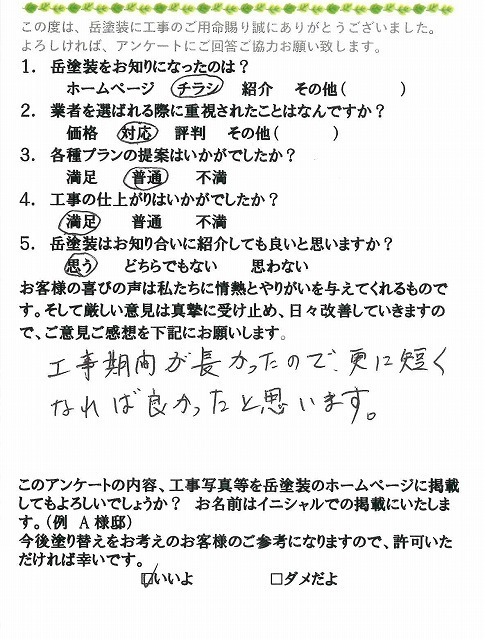 この度は、岳塗装に工事のご用命賜り誠にありがとうございました。
よろしければ、アンケートにご回答ご協力お願い致します。
1. 岳塗装をお知りになったのは？
ホームページ　チラシ　紹介　その他(　　　)
2. 業者を選ばれる際に重視されたことはなんですか？
価格　対応　評判　その他(　　　)
3. 各種プランの提案はいかがでしたか？
満足　普通　不満
4. 工事の仕上がりはいかがでしたか？
満足　普通　不満
5. 岳塗装はお知り合いに紹介しても良いと思いますか？
思う　どちらでもない　思わない
お客様の喜びの声は私たちに情熱とやりがいを与えてくれるもので
す。そして厳しい意見は真摯に受け止め、日々改善していきますの
で、ご意見ご感想を下記にお願いします。
工事期間が長かったので、更に短く
なれば良かったと思います。
このアンケートの内容、工事写真等を岳塗装のホームページに掲載
してもよろしいでしょうか？　お名前はイニシャルでの掲載にいたしま
す。（例　A様邸）
今後塗り替えをお考えのお客様のご参考になりますので、許可いた
だければ幸いです。
☑いいよ　□ダメだよ